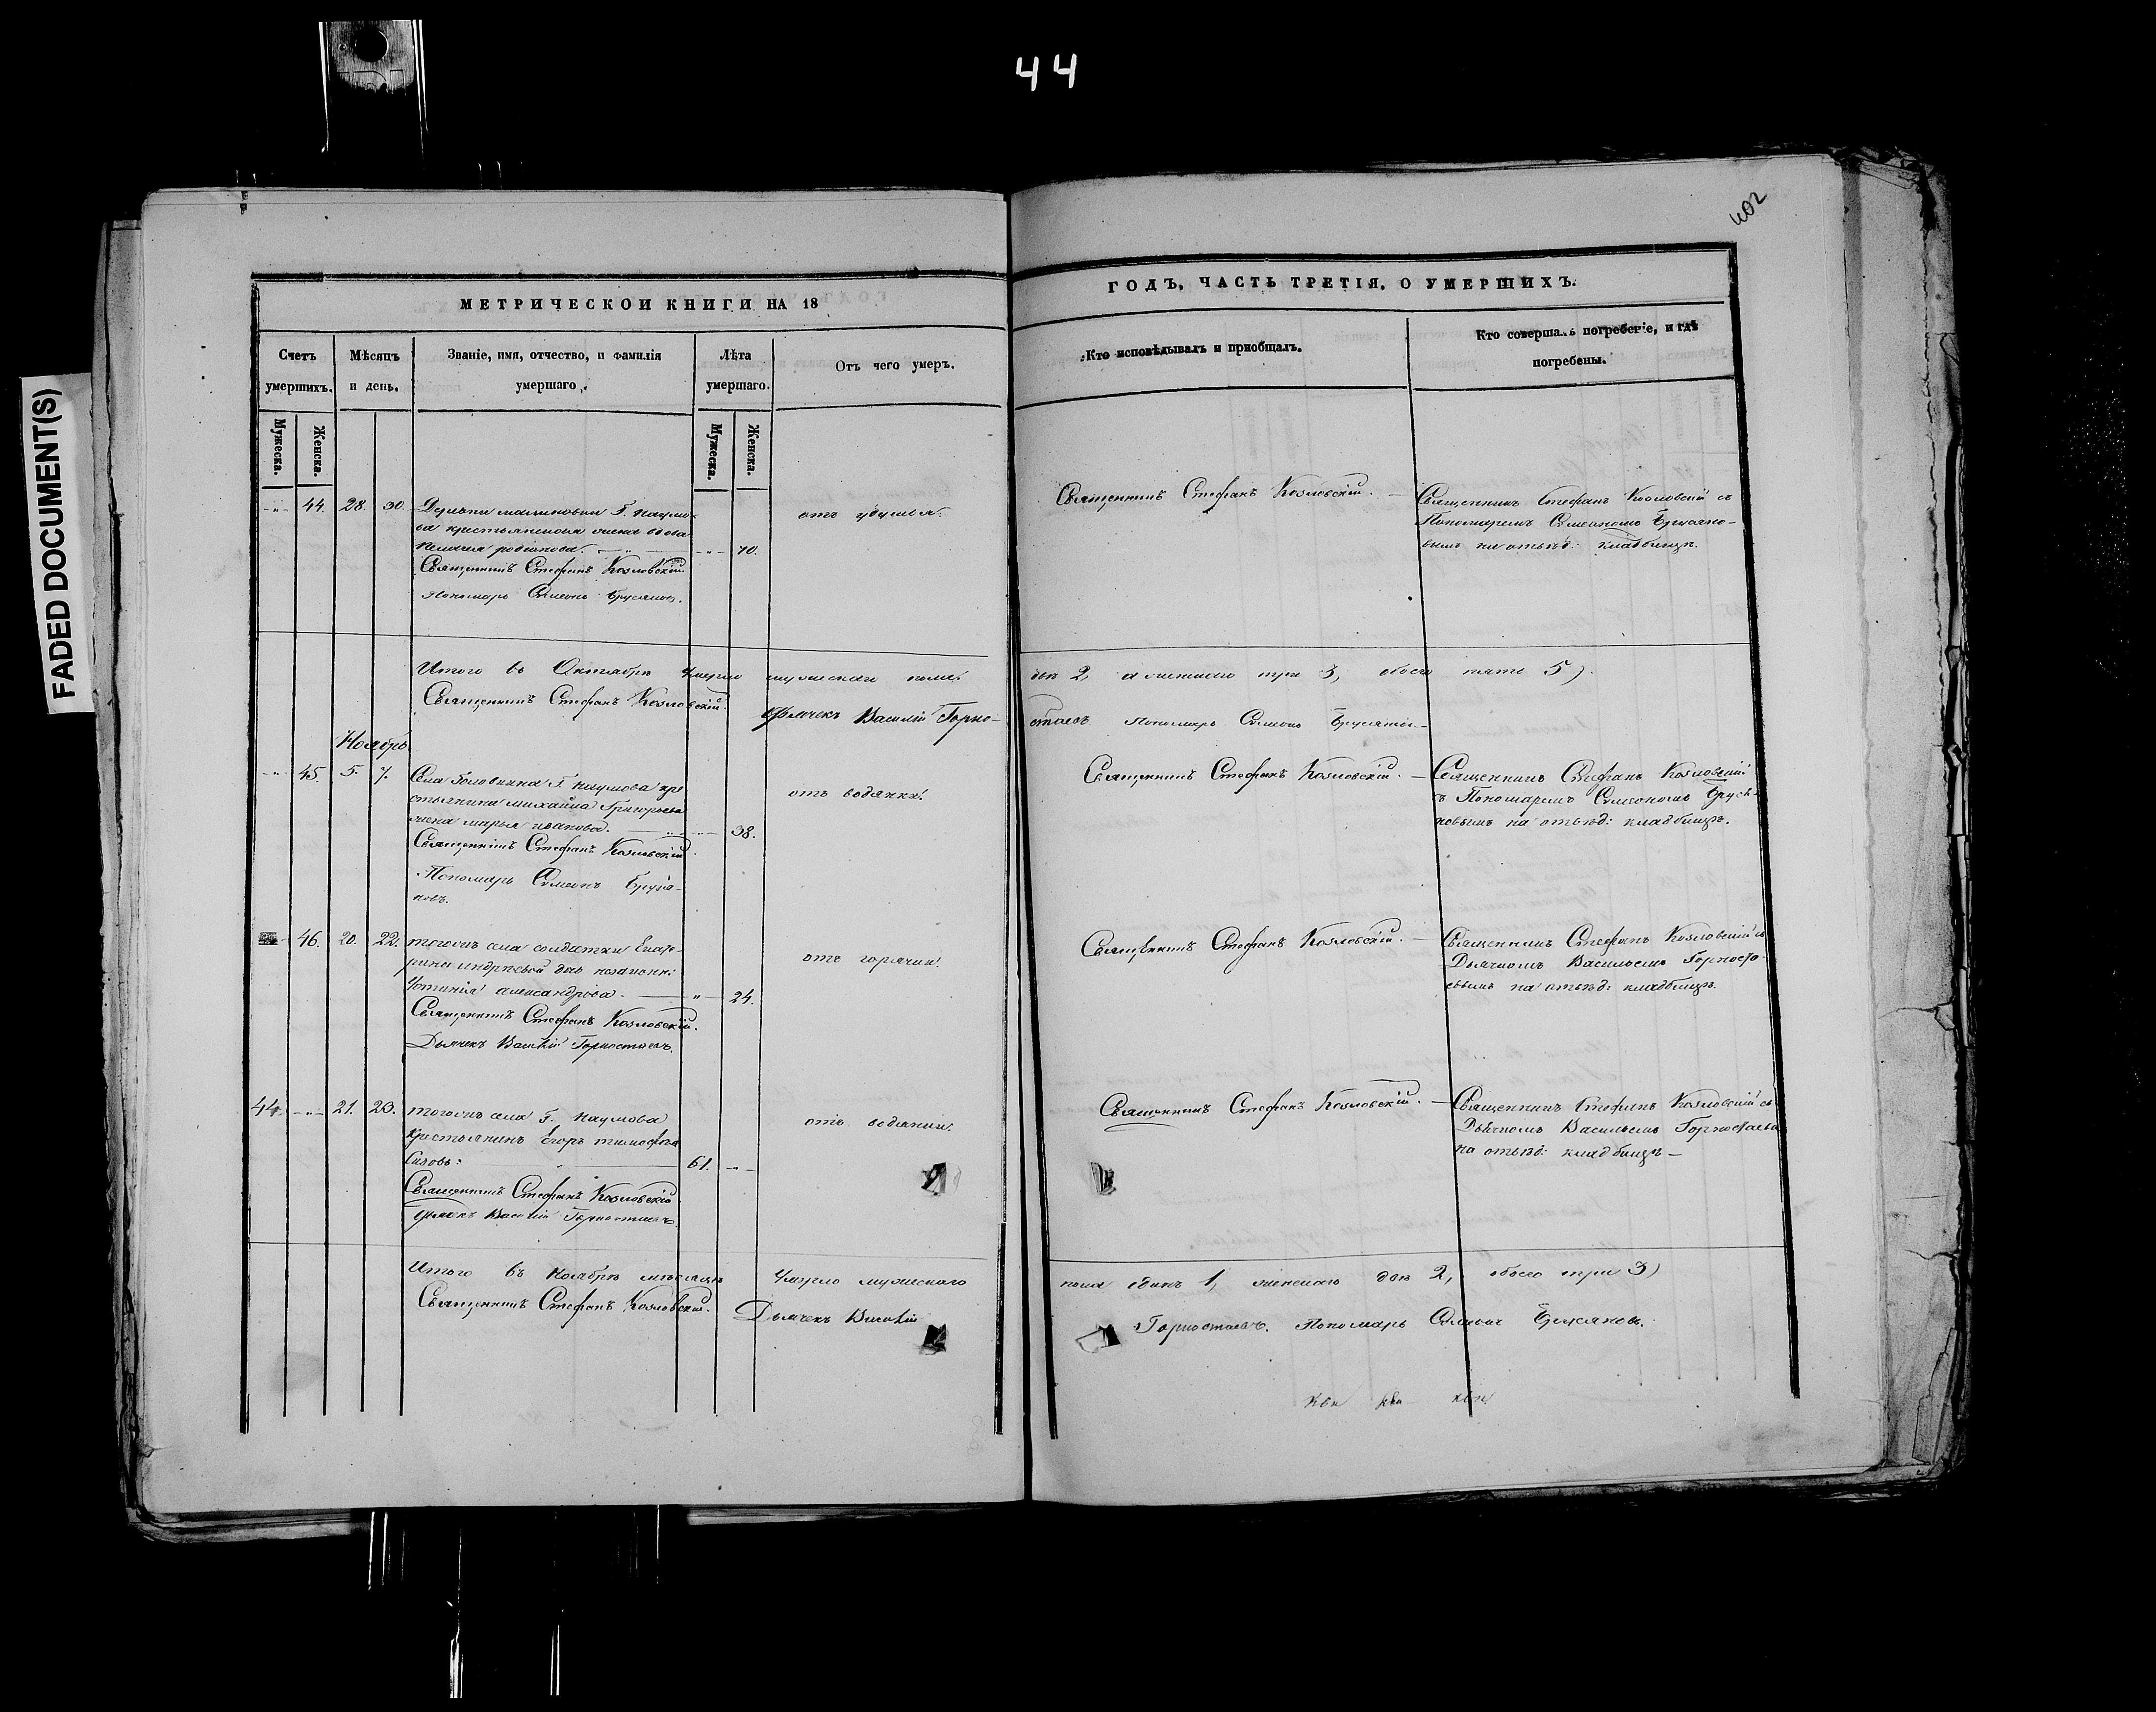 44
FADED DOCUMENT(S)
402
МЕТРИЧЕСКОИ КНИГИ НА 18
ГОДЪ, ЧАСТЬ ТРЕТІЯ, О УМЕРШИХЪ.
Счетъ умершихъ.
Мѣсяцъ и день.
Званіе, имя, отчество, и фамилія умершаго.
Лѣта умершаго.
Отъ чего умеръ.
Кто исповѣдывалъ и пріобщалъ.
Кто совершалъ погребеніе, и гдѣ погребены.
Мужеска.
Женска.
Мужеска.
Женска.
44. 28. 30. Деревни Г. Наумо-
ва крестьянская жена вдова
Пелагея родіонова. 70.
Священникъ Стефанъ Козловскій.
Пономарь Симеонъ Брусяновъ.
Священникъ Стефанъ Козловскій.
Священникъ Стефанъ Козловскій съ
Пономаремъ Симеономъ Брусяно-
вымъ на отвѣд: кладбищѣ.
Итого въ Октябрѣ умерло мужескаго пола два 2, а женскаго три 3, обоего пять 5)
Священникъ Стефанъ Козловскій. Дьячекъ Василій Горно-
стаевъ Пономарь Симеонъ Брусяновъ
Ноябрь
45. 5. 7. Села Головкина Г. Наумова кре
стьянина михаила Григорьева
жена марья иванова. 38.
Священникъ Стефанъ Козловскій
Пономарь Симеонъ Бруся-
новъ.
отъ водянки.
Священникъ Стефанъ Козловскій.
Священникъ Стефанъ Козловскій
съ Пономаремъ Симеономъ Бруся-
новымъ на отвѣд: кладбищѣ.
46. 20. 22. тогожъ села солдатки Екате-
рины андреевой дочь незаконн:
Устинія александрова. 24.
Священникъ Стефанъ Козловскій.
Дьячекъ Василій Горностаевъ.
отъ горячки.
Священникъ Стефанъ Козловскій.
Священникъ Стефанъ Козловскій съ
Дьячкомъ Васильемъ Горноста-
евымъ на отвѣд: кладбищѣ.
44. 21. 23. тогожъ села Г. Наумова
крестьянинъ Егоръ тимофѣевъ
Сизовъ: 61.
Священникъ Стефанъ Козловскій
Дьячекъ Василій Горностаевъ.
отъ водянки.
Священникъ Стефанъ Козловскій.
Священникъ Стефанъ Козловскій съ
Дьячкомъ Васильемъ Горностаевымъ
на отвѣд: кладбищѣ
Итого въ Ноябрѣ мѣсяцѣ Умерло мужескаго пола одинъ 1, женскаго два 2, обоего три 3)
Священникъ Стефанъ Козловскій. Дьячекъ Василій
Горностаевъ. Пономарь Симеонъ Брусяновъ.